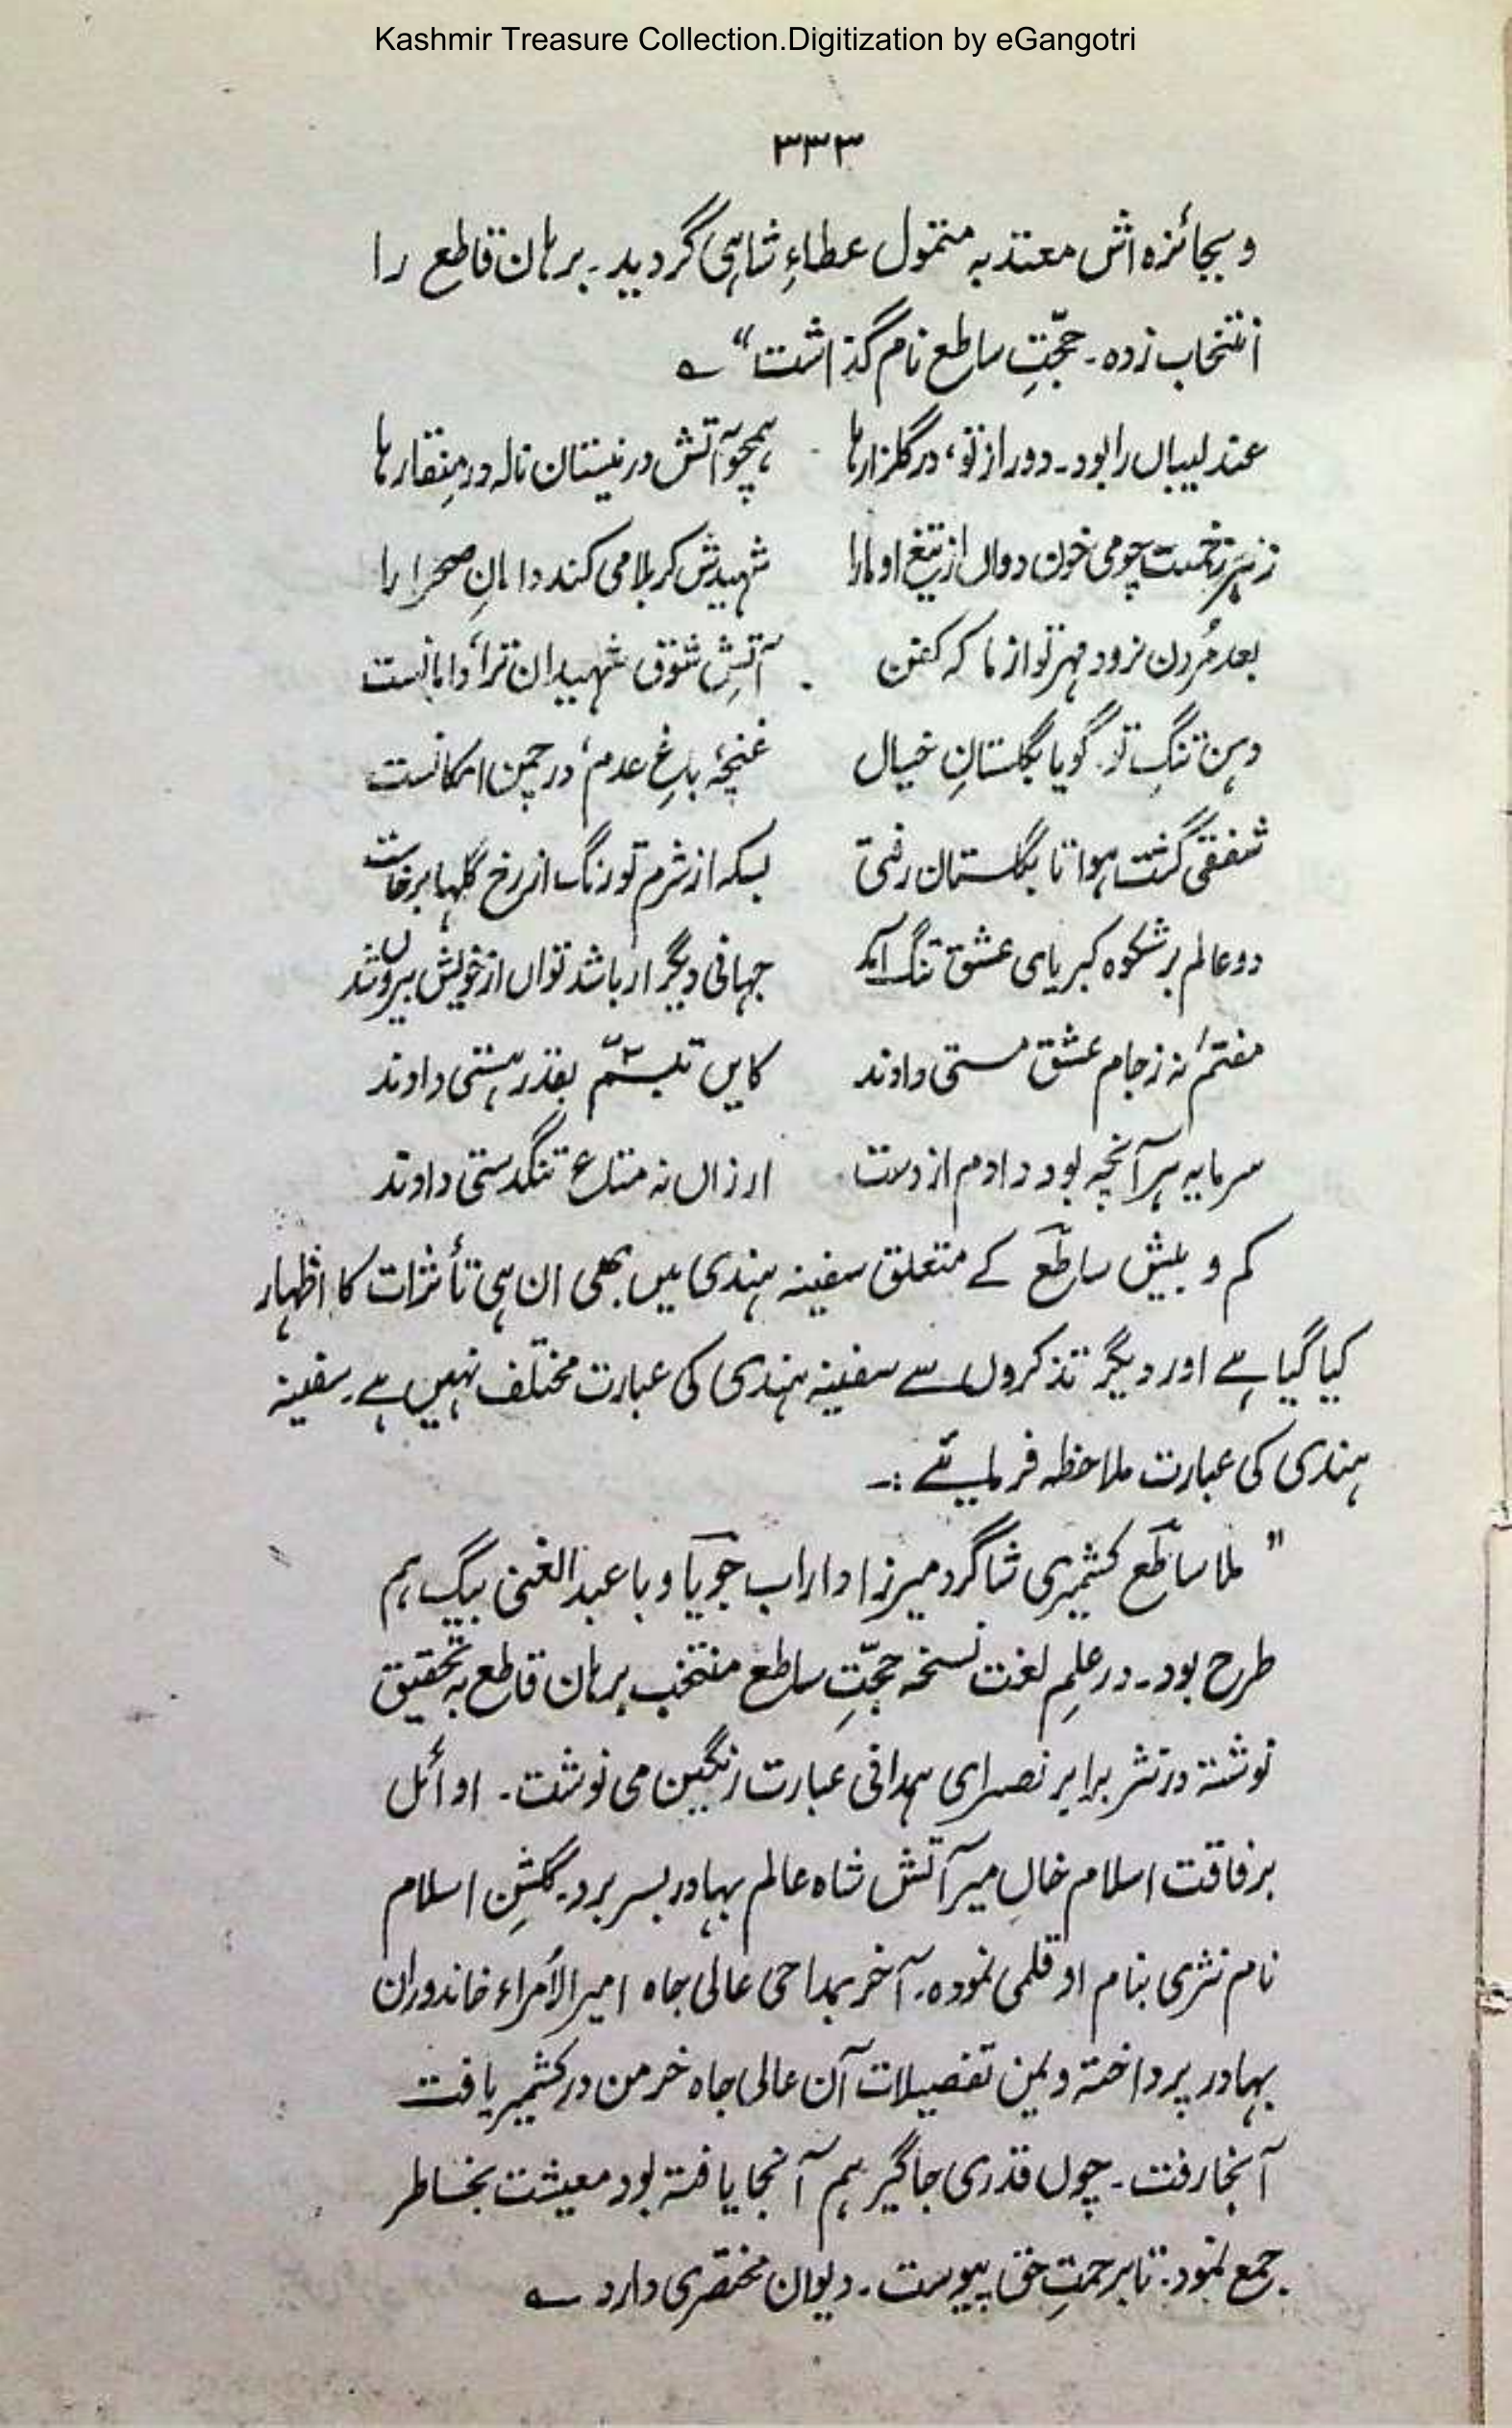 Kashmir Treasure Collection.Digitization by eGangotri
۳۳۳
و بجائزہ اش معتد بہ متمول عطاءِ شاہی گردید۔ برہان قاطع را
انتخاب زدہ۔ حجّتِ ساطع نام گذاشت“ ؎
عندلیباں را بود۔ دور از تو، در گلزارہا ہمچو آتش در نیستان نالہ در مِنقارہا
ز ہر زخمت چو می خون دواں از تیغ او مارا شہیدش کربلا می کند دامانِ صحرا را
بعد مُردن نرود مہر تو از ما کہ کفن آتشِ شوق شہیدان ترا، دامانست
دہن تنگِ تو۔ گویا بگلستانِ خیال غنچۂ باغِ عدم، در چمن امکانست
شفقی گشت ہوا تا بگلستان رفتی بسکہ از شرم تو رنگ از رخ گلہا برخاست
دو عالم بر شکوہ کبریای عشق تنگ آمد جہانی دیگر ار باشد تواں از خویش بیروں شد
مفتم نہ ز جام عشق مستی دادند کایں تبسّم بقدر ہستی دادند
سرمایہ ہر آنچہ بود دادم از دست ارزاں نہ متاع تنگدستی دادند
کم و بیش ساطعؔ کے متعلق سفینہ ہندی میں بھی ان ہی تأثرات کا اظہار
کیا گیا ہے اور دیگر تذکروں سے سفینہ ہندی کی عبارت مختلف نہیں ہے۔ سفینہ
ہندی کی عبارت ملاحظہ فرمائیے :۔
” ملا ساطعؔ کشمیری شاگرد میرزا داراب جویاؔ و با عبدالغنی بیگ ہم
طرح بود۔ در علمِ لغت نسخہ حجّتِ ساطع منتخب برہان قاطع بہ تحقیق
نوشتہ در نثر برابر نصرای ہمدانی عبارت رنگین می نوشت۔ اوائل
برفاقت اسلام خاں میر آتش شاہ عالم بہادر بسر برد۔ گلشنِ اسلام
نام نثری بنام او قلمی نمودہ۔ آخر بمداحی عالی جاہ امیرالاُمراء خاندوران
بہادر پرداختہ و بمن تفصیلات آن عالی جاہ خرمن در کشمیر یافت
آنجا رفت۔ چوں قدری جاگیر ہم آنجا یافتہ بود معیشت بخاطر
جمع نمود۔ تا برحمتِ حق پیوست۔ دیوان مختصری دارد ؎